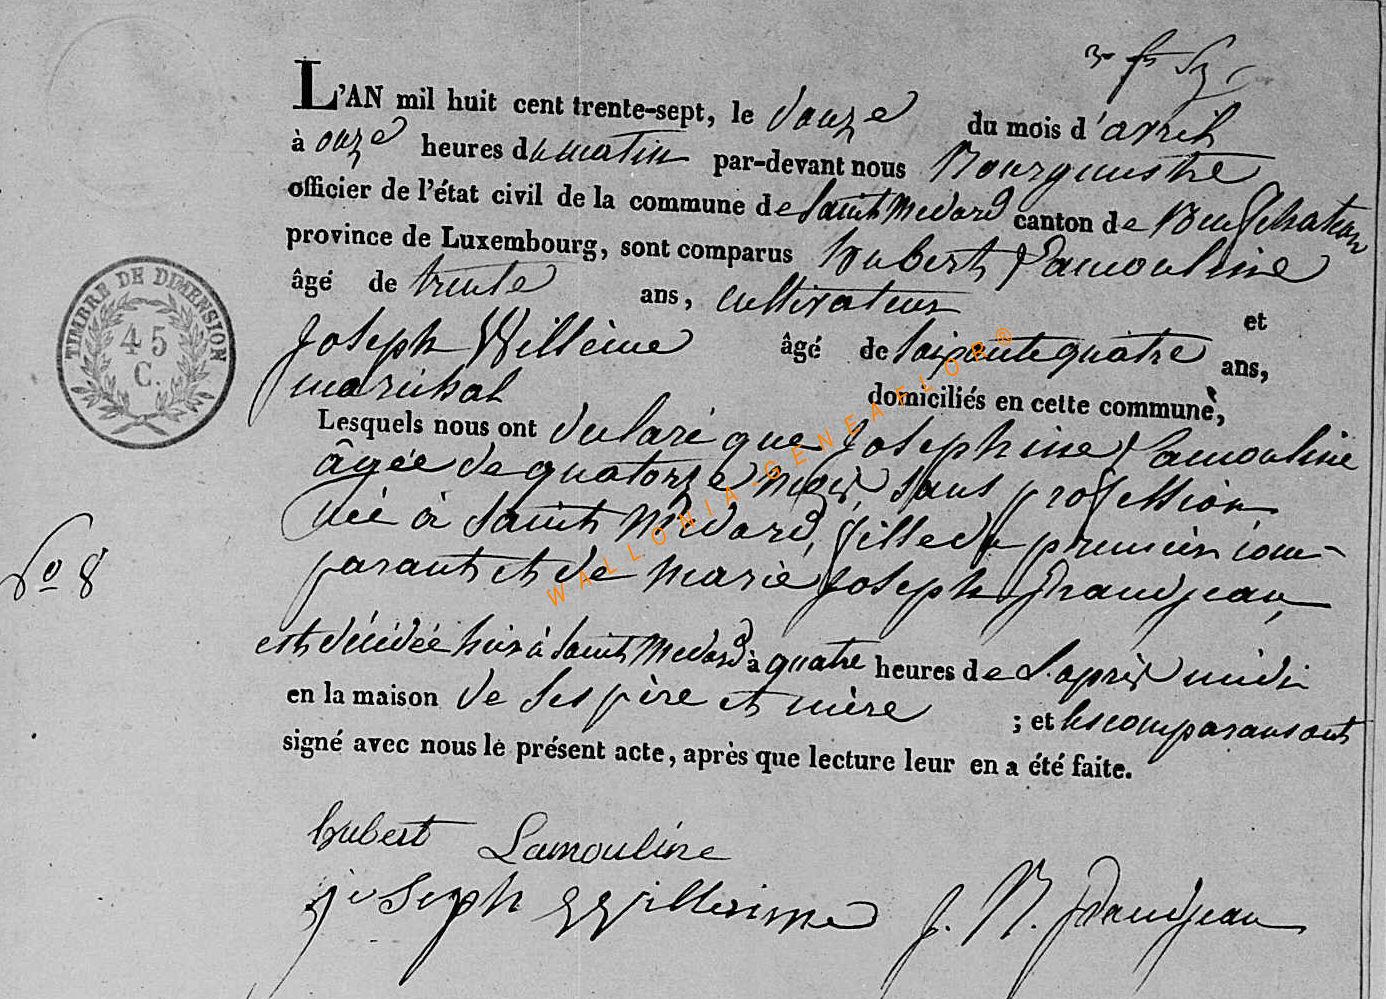 L'AN mil huit cent trente-sept, le douze du mois d'avril
à onze heures du matin par-devant nous Bourgmestre
officier de l'état civil de la commune de Saint Medard canton de Neufchateau
province de Luxembourg, sont comparus hubert Lamouline
âgé de trente ans, cultivateur et
Joseph Willème âgé de soixante quatre ans,
marechal domiciliés en cette commune,
Lesquels nous ont declaré que Josephine Lamouline
âgée de quatorze mois, sans profession
née à Saint Medard, fille du premier com-
parant et de marie Joseph Grandjean
est décédée hier à Saint Medard à quatre heures de l'après midi
en la maison de ses père et mère ; et les comparans ont
signé avec nous le présent acte, après que lecture leur en a été faite.
hubert Lamouline
joseph Willeime J. N. Grandjean
No 8
TIMBRE DE DIMENSION
45
C.
WALLONIA-GENEAFLOR®